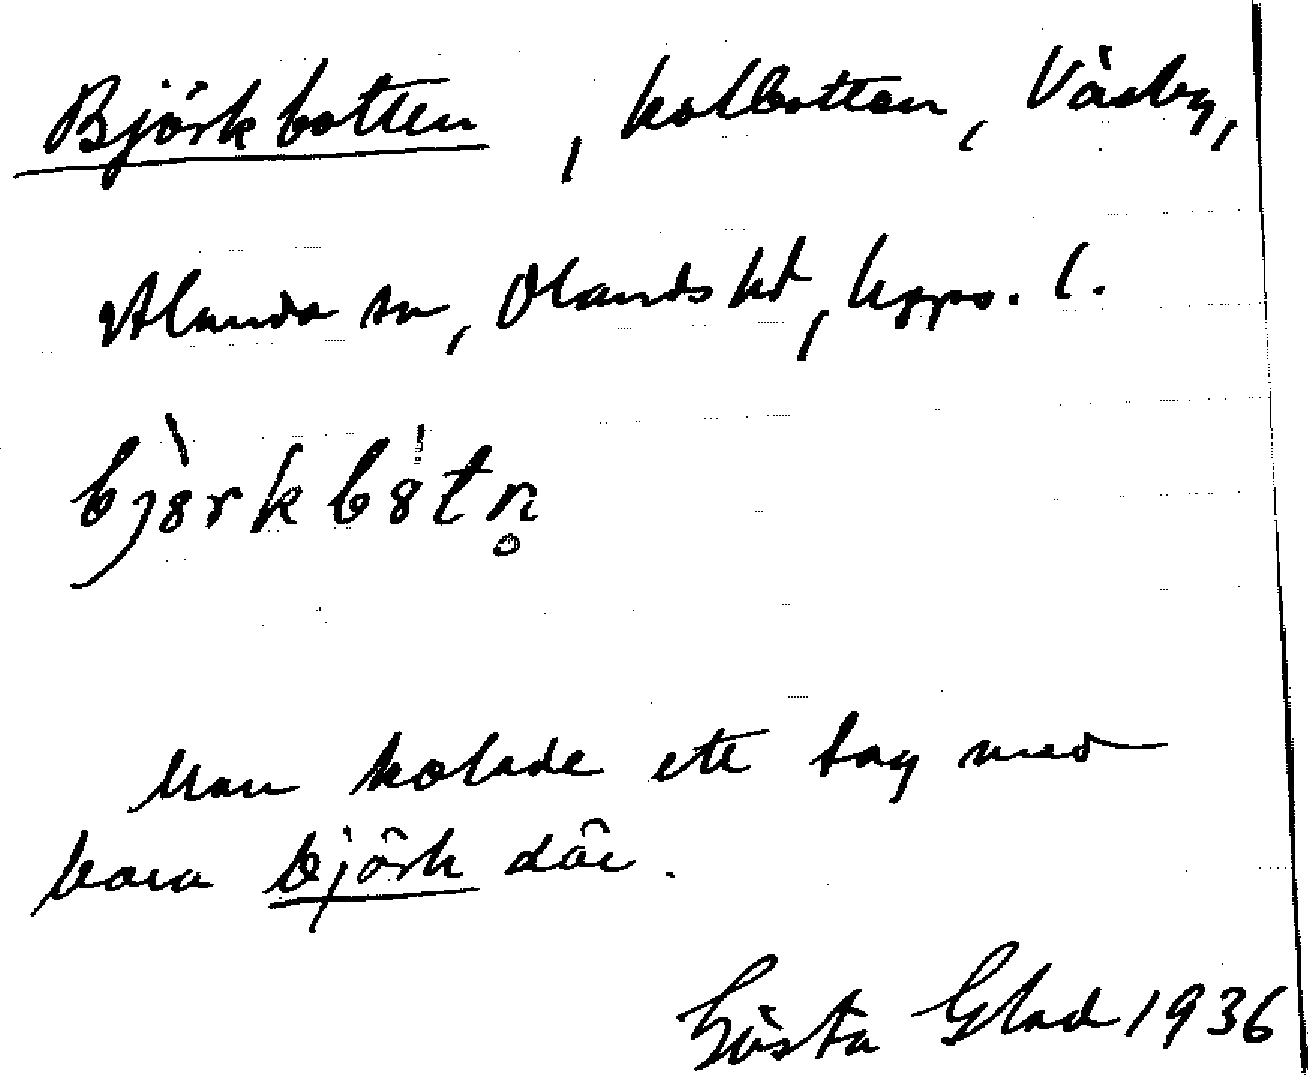 Björkbotten, kolbotten, Väsby,
Alunda sn, Olands hd, Upps. l.
bjò̀rkbót n̥
Man kolade ett tag med
bara björk där.
Gösta Glad 1936